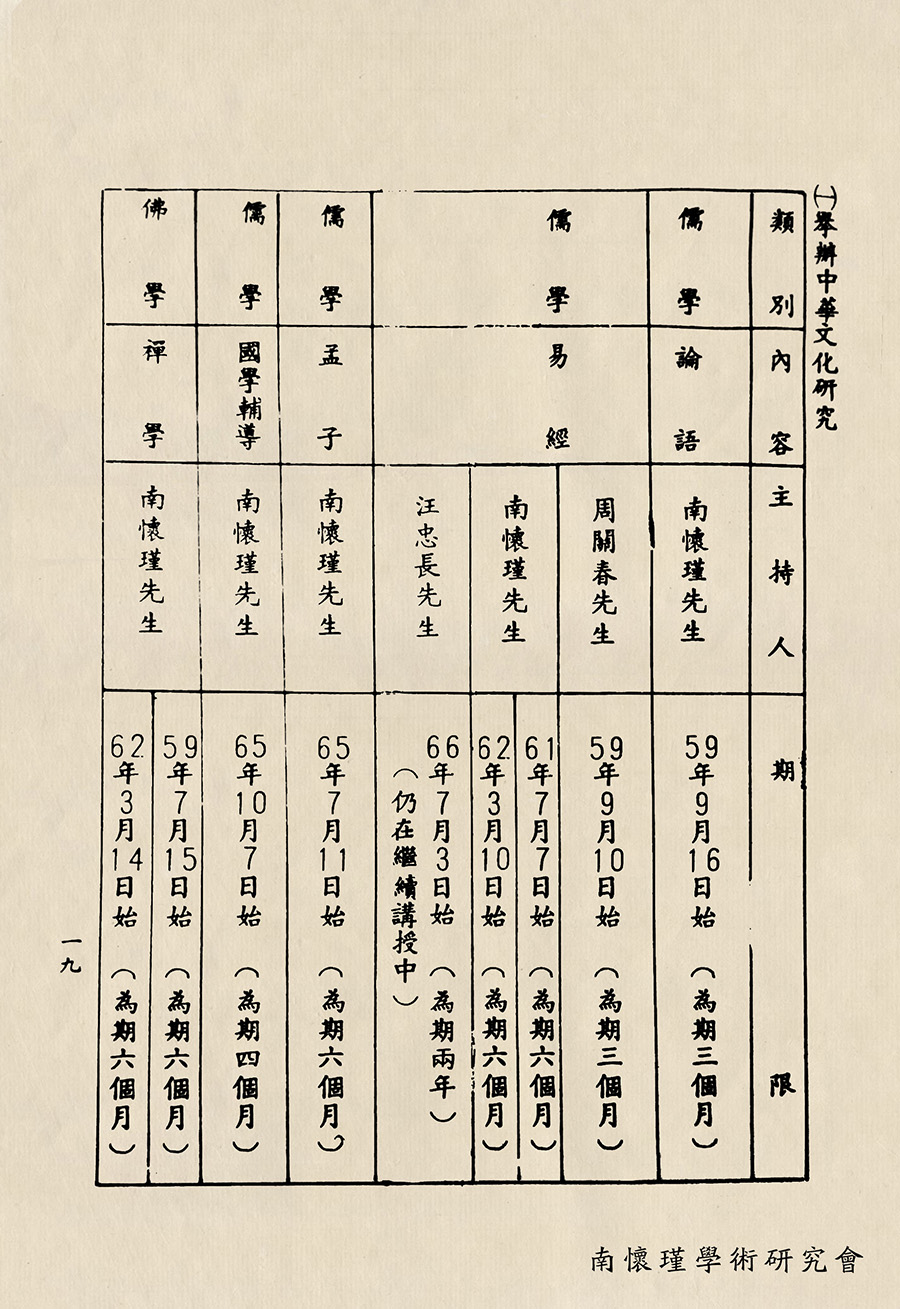 ㈠舉辦中華文化研究
類別 內容 主持人 期限
儒學 論語 南懷瑾先生 59年9月16日始（為期三個月）
儒學 易經 周關春先生 59年9月10日始（為期三個月）
南懷瑾先生 61年7月7日始（為期六個月）
62年3月10日始（為期六個月）
汪忠長先生 66年7月3日始（為期兩年）
（仍在繼續講授中）
儒學 孟子 南懷瑾先生 65年7月11日始（為期六個月）
儒學 國學輔導 南懷瑾先生 65年10月7日始（為期四個月）
佛學 禪學 南懷瑾先生 59年7月15日始（為期六個月）
62年3月14日始（為期六個月）
一九
南懷瑾學術研究會